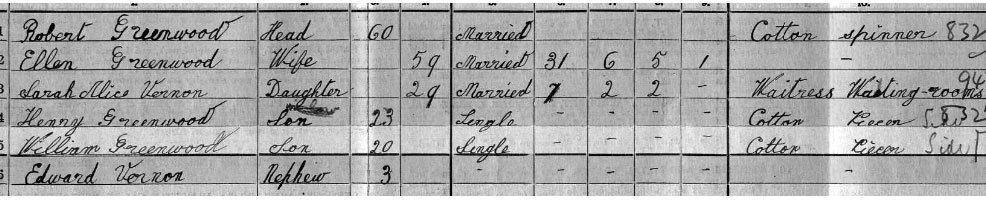 1 Robert Greenwood Head 60 Married Cotton spinner 832
2 Ellen Greenwood Wife 59 Married 31 6 5 1 -
3 Sarah Alice Vernon Daughter 29 Married 7 2 2 - Waitress Waiting-rooms 94
4 Henry Greenwood Son 23 Single - - - - Cotton Piecer 32
5 William Greenwood Son 20 Single - - - - Cotton Piecer Side
6 Edward Vernon Nephew 3 - - - - - -